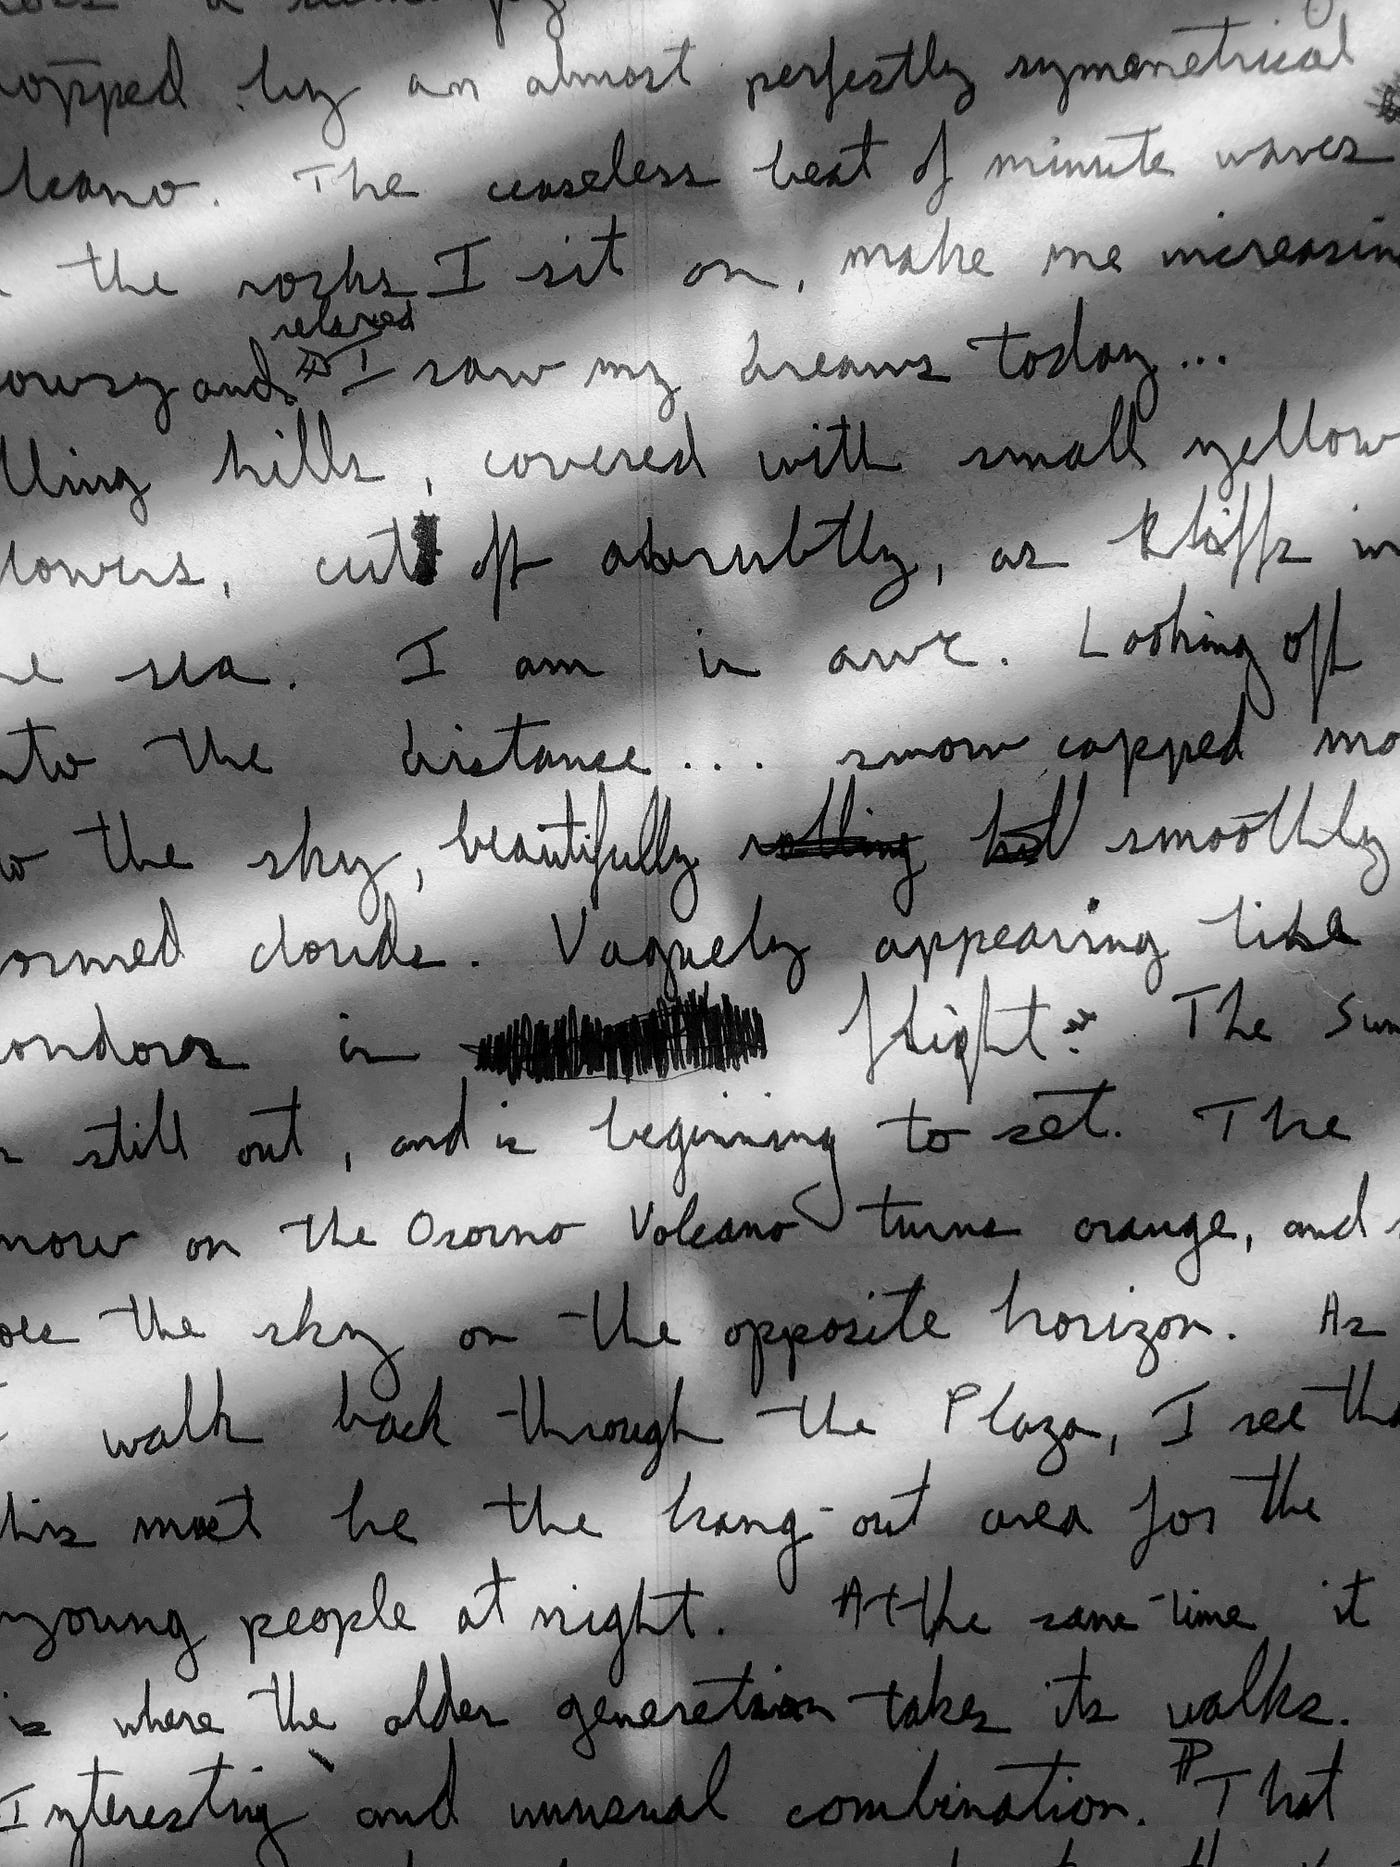 opped by an almost perfectly symmetrical
lcano. The ceaseless beat of minute waves
the rocks I sit on, make me increasin
relaxed
owsy and I saw my dreams today...
lling hills, covered with small yellow
lowers, cut off abrubtly, as kliffs in
he sea. I am in awe. Looking off
nto the distance... snow capped mo
w the sky, beautifully rolling smoothly
ormed clouds. Vaguely appearing like
ondors in flight. The Sun
still out, and is beginning to set. The
now on the Osorno Volcano turns orange, and
oes the sky on the opposite horizon. As
I walk back through the Plaza, I see tha
this must be the hang-out area for the
young people at night. At the same time it
is where the older generation takes its walks.
Interesting and unusual combination. That